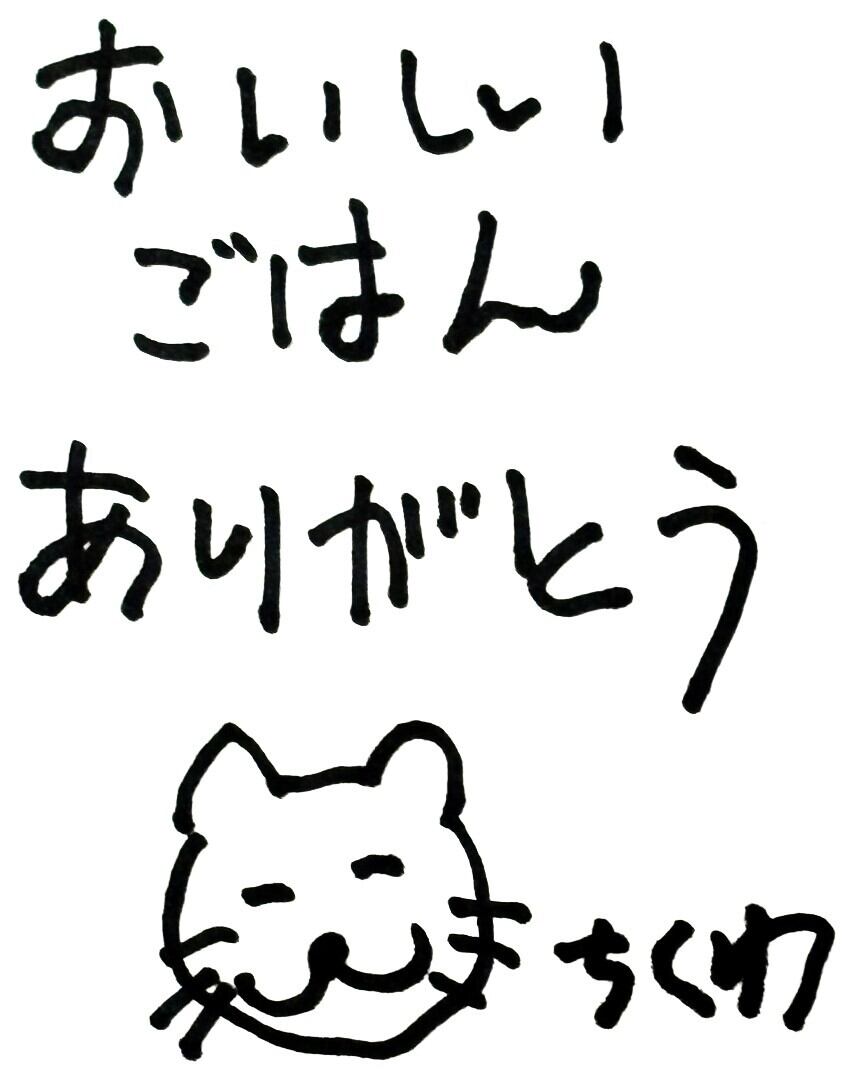 おいしい
ごはん
ありがとう
ちくわ